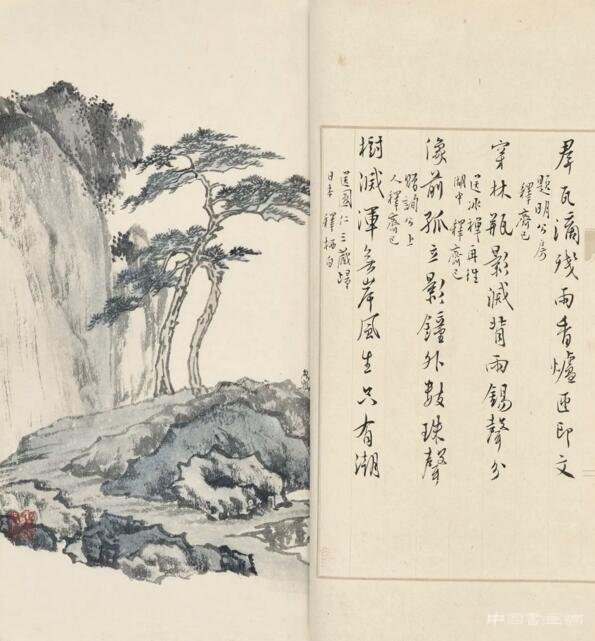 羣瓦滴殘雨香爐匝印文
題明公房
釋齊己
穿林瓶影滅背雨錫聲分
送冰禪再往
湖中 釋齊己
像前孤立影鐘外數珠聲
贈詢公上
人 釋齊己
樹滅渾無岸風生只有潮
送圓仁三藏歸
日本 釋栖白
中國書畫網